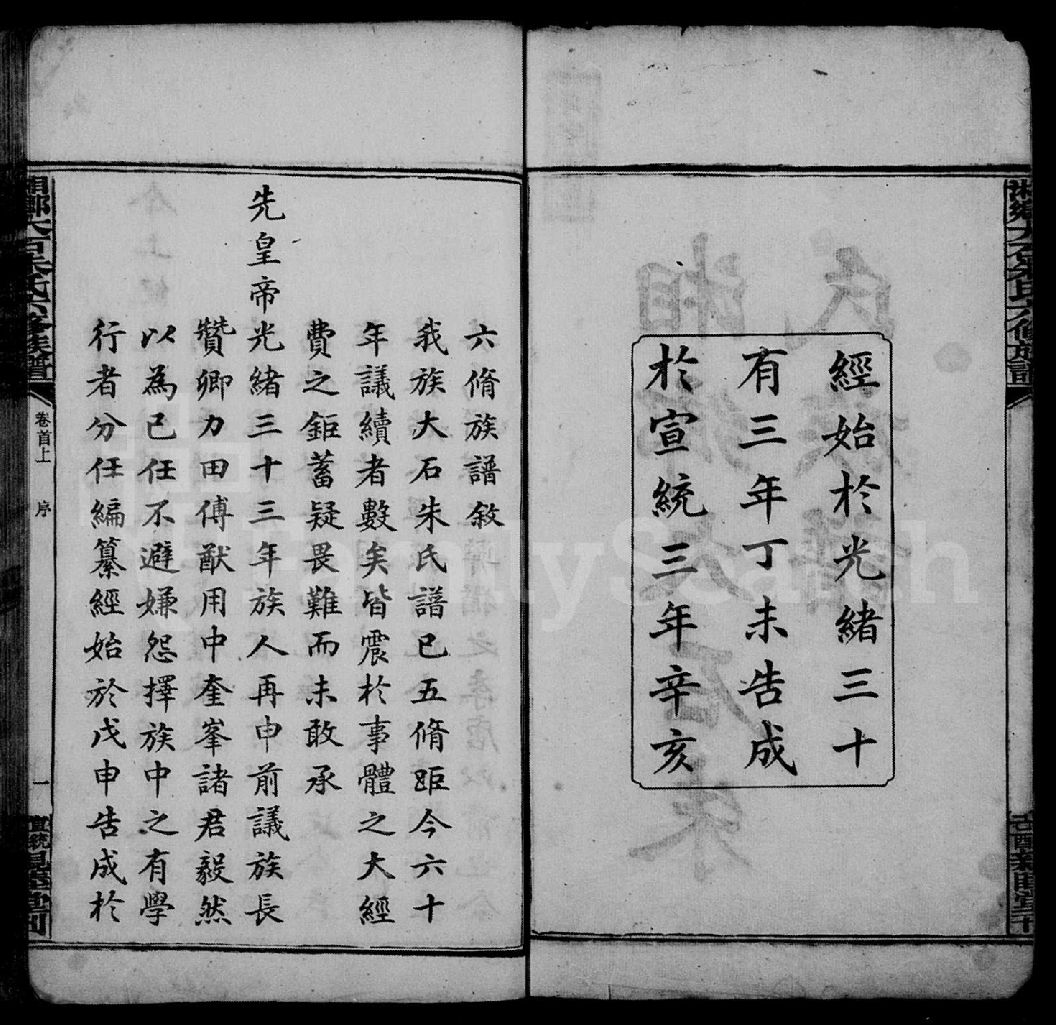 湘鄉大石朱氏六修族譜
經始於光緒三十
有三年丁未告成
於宣統三年辛亥
六脩族譜敘
我族大石朱氏譜已五脩距今六十
年議續者數矣皆震於事體之大經
費之鉅蓄疑畏難而未敢承
先皇帝光緒三十三年族人再申前議族長
贊卿力田傅猷用中奎峯諸君毅然
以為己任不避嫌怨擇族中之有學
行者分任編纂經始於戊申告成於
湘鄉大石朱氏六修族譜
卷首上
序
一
宣統
FamilySearch